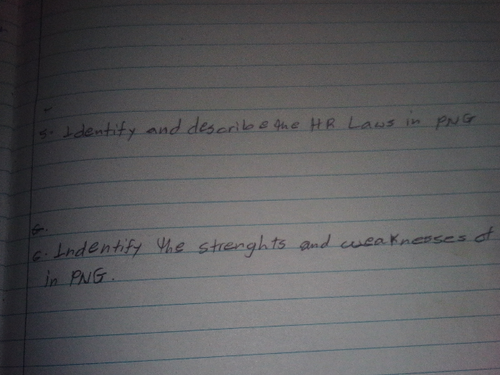 5. Identify and describe the HR Laws in PNG
6. Indentify the strenghts and weaknesses of
in PNG.